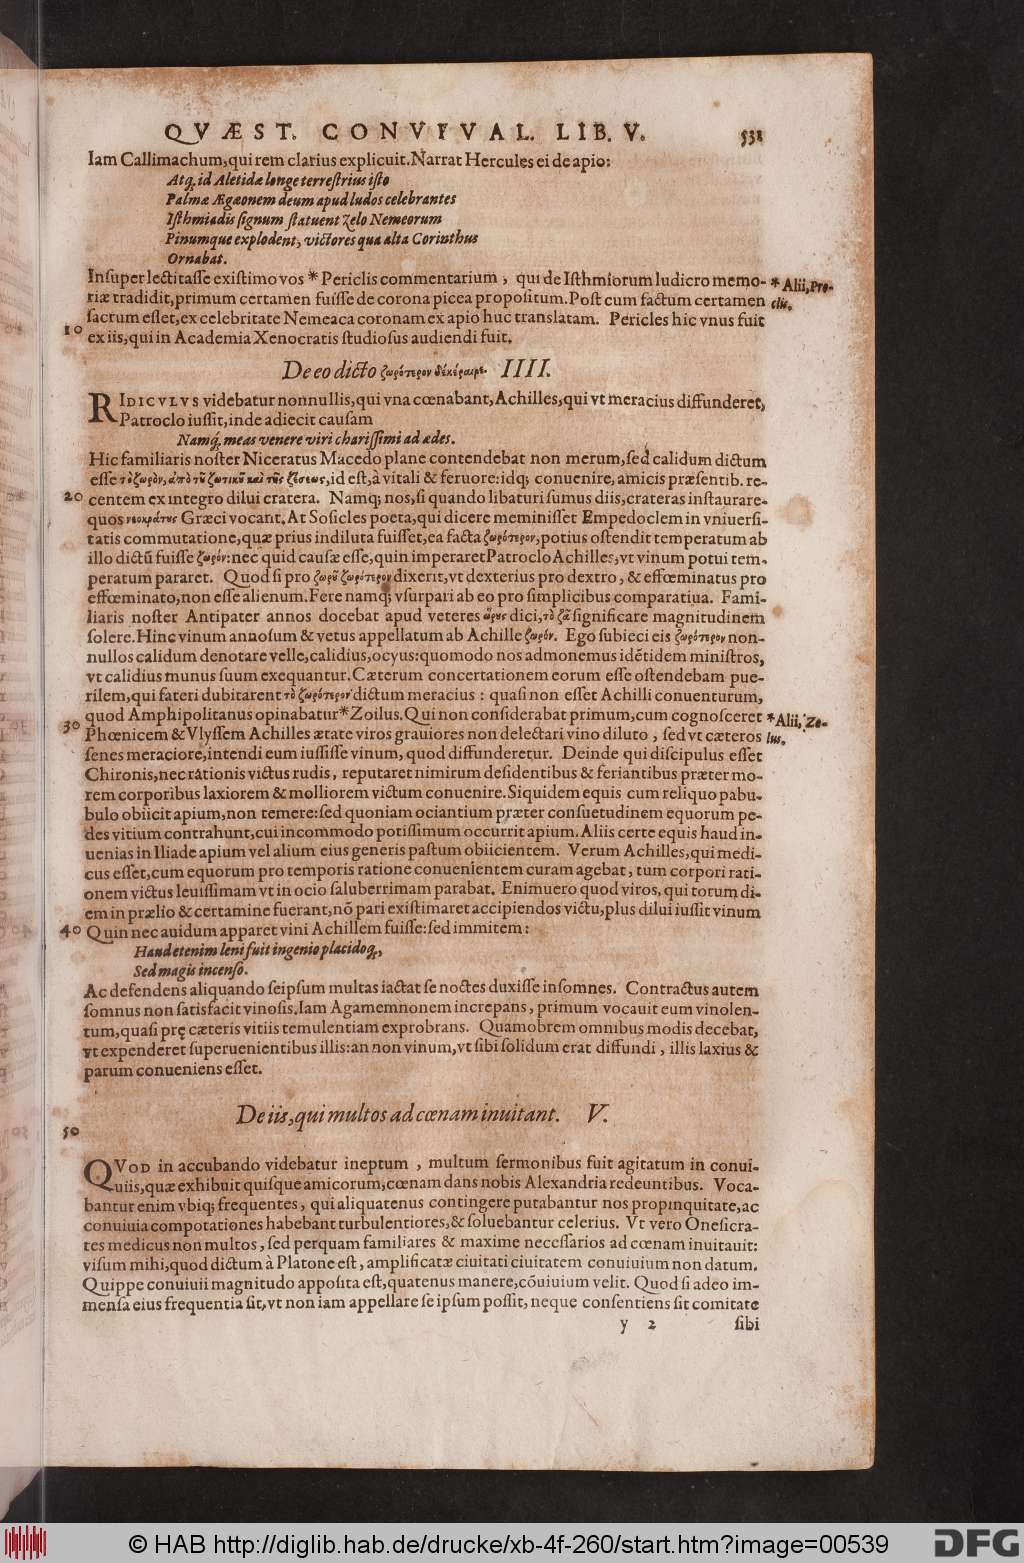 QVÆST. CONVIVAL. LIB. V. 531
Iam Callimachum, qui rem clarius explicuit. Narrat Hercules ei de apio:
Atq; id Aletidæ longe terrestrius isto
Palmæ Ægæonem deum apud ludos celebrantes
Isthmiadis signum statuent zelo Nemeorum
Pinumque explodent, victores qua alta Corinthus
Ornabat.
Insuper lectitasse existimo vos * Periclis commentarium, qui de Isthmiorum ludicro memo- * Alii, Pro-
riæ tradidit, primum certamen fuisse de corona picea propositum. Post cum factum certamen clis.
sacrum esset, ex celebritate Nemeaca coronam ex apio huc translatam. Pericles hic vnus fuit
10 ex iis, qui in Academia Xenocratis studiosus audiendi fuit.
De eo dicto ζωρότερον δὲ κέραιρε. IIII.
RIDICVLVS videbatur nonnullis, qui vna cœnabant, Achilles, qui vt meracius diffunderet,
Patroclo iussit, inde adiecit causam
Namq; meas venere viri charissimi ad ædes.
Hic familiaris noster Niceratus Macedo plane contendebat non merum, sed calidum dictum
esse τὸ ζωρὸν, ἀπὸ τοῦ ζωτικοῦ καὶ τῆς ζέσεως, id est, à vitali & feruore: idq; conuenire, amicis præsentib. re-
20 centem ex integro dilui cratera. Namq; nos, si quando libaturi sumus diis, crateras instaurare-
quos νεοκράτας Græci vocant. At Sosicles poeta, qui dicere meminisset Empedoclem in vniuersi-
tatis commutatione, quæ prius indiluta fuisset, ea facta ζωρότερον, potius ostendit temperatum ab
illo dictū fuisse ζωρόν: nec quid causæ esse, quin imperaret Patroclo Achilles, vt vinum potui tem-
peratum pararet. Quod si pro ζωροῦ ζωρότερον dixerit, vt dexterius pro dextro, & effœminatus pro
effœminato, non esse alienum. Fere namq; vsurpari ab eo pro simplicibus comparatiua. Fami-
liaris noster Antipater annos docebat apud veteres ὥρους dici, τὸ ζᾶ significare magnitudinem
solere. Hinc vinum annosum & vetus appellatum ab Achille ζωρόν. Ego subieci eis ζωρότερον non-
nullos calidum denotare velle, calidius, ocyus: quomodo nos admonemus idētidem ministros,
vt calidius munus suum exequantur. Cæterum concertationem eorum esse ostendebam pue-
rilem, qui fateri dubitarent τὸ ζωρότερον dictum meracius: quasi non esset Achilli conuenturum,
30 quod Amphipolitanus opinabatur * Zoilus. Qui non considerabat primum, cum cognosceret * Alii, Zo-
Phœnicem & Vlyssem Achilles ætate viros grauiores non delectari vino diluto, sed vt cæteros ilus.
senes meraciore, intendi eum iussisse vinum, quod diffunderetur. Deinde qui discipulus esset
Chironis, nec rationis victus rudis, reputaret nimirum desidentibus & feriantibus præter mo-
rem corporibus laxiorem & molliorem victum conuenire. Siquidem equis cum reliquo pabu-
bulo obiicit apium, non temere: sed quoniam ociantium præter consuetudinem equorum pe-
des vitium contrahunt, cui incommodo potissimum occurrit apium. Aliis certe equis haud in-
uenias in Iliade apium vel alium eius generis pastum obiicientem. Verum Achilles, qui medi-
cus esset, cum equorum pro temporis ratione conuenientem curam agebat, tum corpori rati-
onem victus leuissimam vt in ocio saluberrimam parabat. Enimuero quod viros, qui totum di-
em in prælio & certamine fuerant, nō pari existimaret accipiendos victu, plus dilui iussit vinum
40 Quin nec auidum apparet vini Achillem fuisse: sed immitem:
Haud etenim leni fuit ingenio placidoq;,
Sed magis incenso.
Ac defendens aliquando seipsum multas iactat se noctes duxisse insomnes. Contractus autem
somnus non satisfacit vinosis. Iam Agamemnonem increpans, primum vocauit eum vinolen-
tum, quasi prę cæteris vitiis temulentiam exprobrans. Quamobrem omnibus modis decebat,
vt expenderet superuenientibus illis: an non vinum, vt sibi solidum erat diffundi, illis laxius &
parum conueniens esset.
De iis, qui multos ad cœnam inuitant. V.
50
QVOD in accubando videbatur ineptum, multum sermonibus fuit agitatum in conui-
uiis, quæ exhibuit quisque amicorum, cœnam dans nobis Alexandria redeuntibus. Voca-
bantur enim vbiq; frequentes, qui aliquatenus contingere putabantur nos propinquitate, ac
conuiuia compotationes habebant turbulentiores, & soluebantur celerius. Vt vero Onesicra-
tes medicus non multos, sed perquam familiares & maxime necessarios ad cœnam inuitauit:
visum mihi, quod dictum à Platone est, amplificatæ ciuitati ciuitatem conuiuium non datum.
Quippe conuiuii magnitudo apposita est, quatenus manere, cōuiuium velit. Quod si adeo im-
mensa eius frequentia sit, vt non iam appellare se ipsum possit, neque consentiens sit comitate
y 2 sibi
© HAB http://diglib.hab.de/drucke/xb-4f-260/start.htm?image=00539 DFG